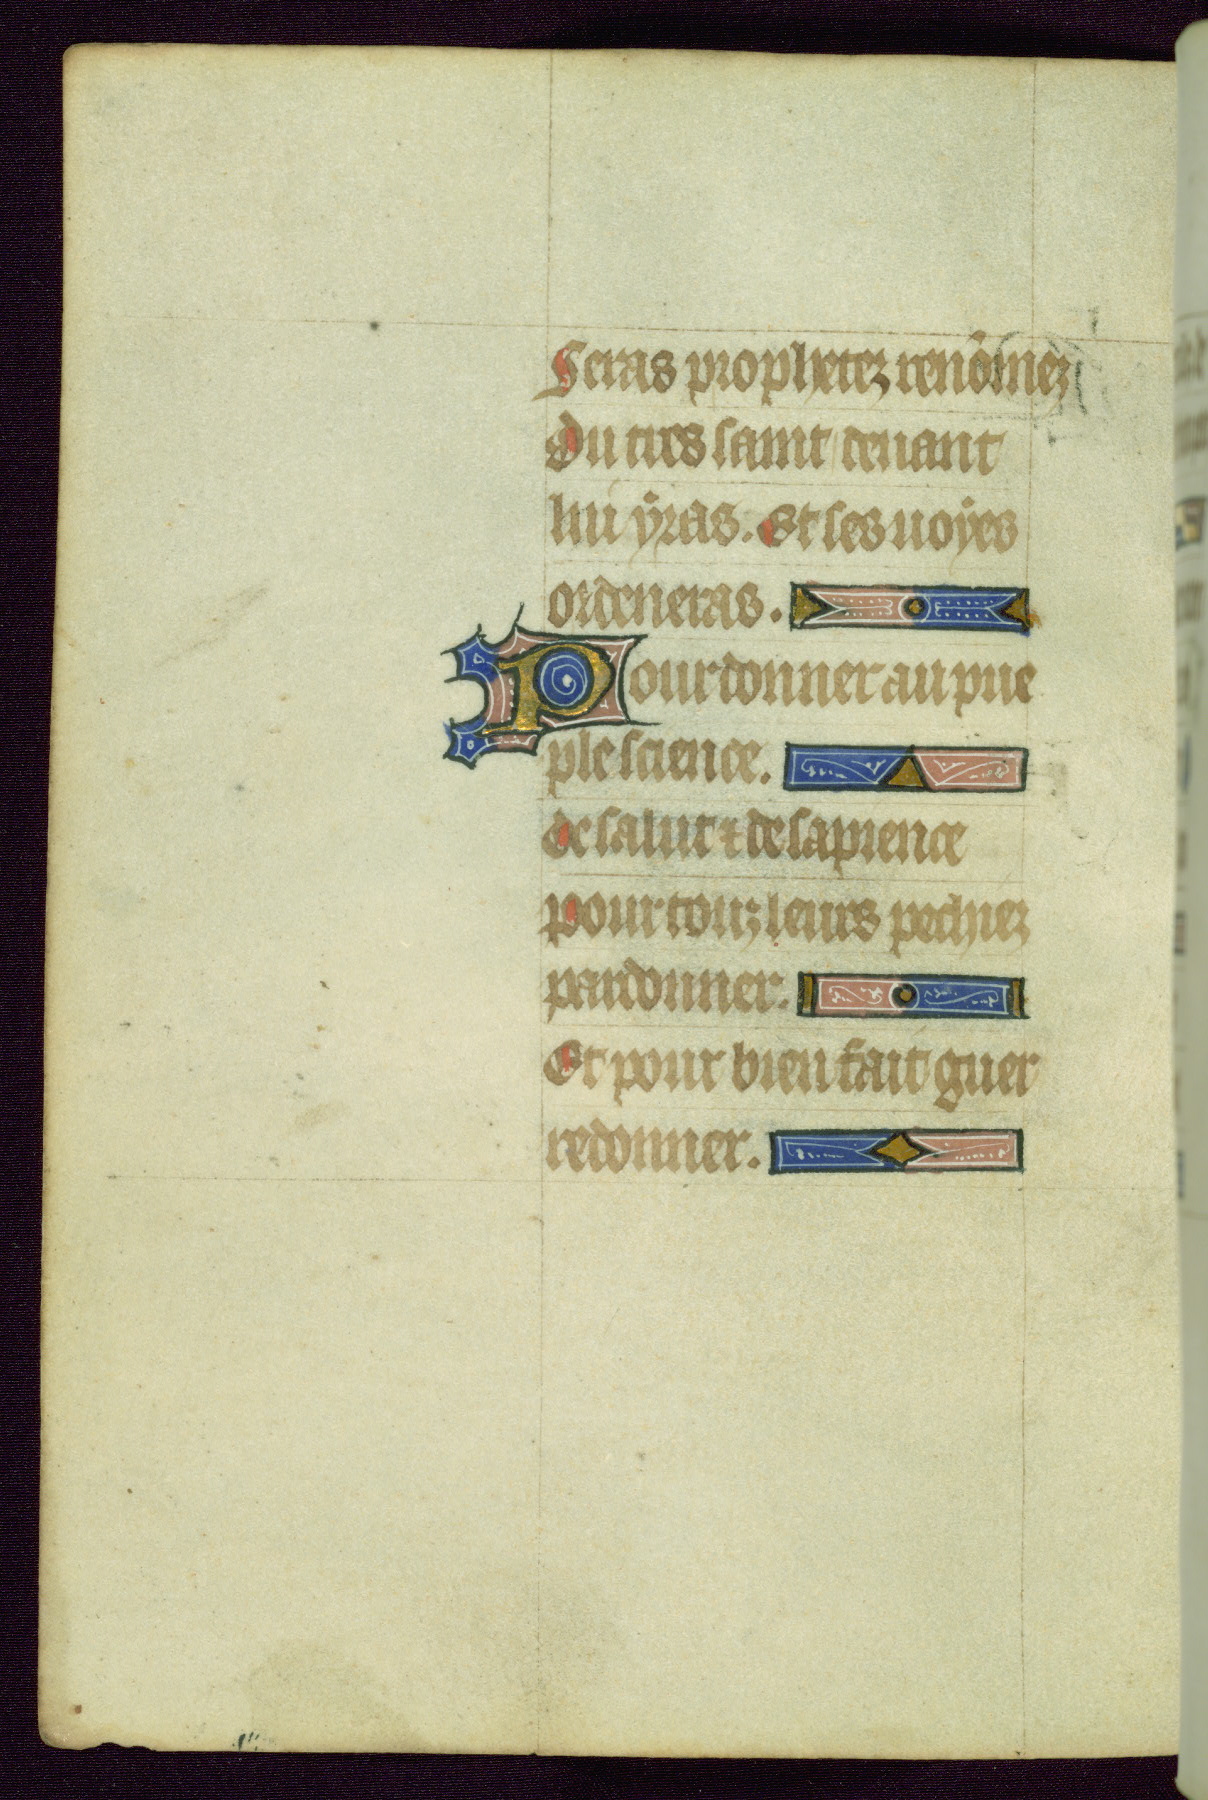 Seras prophetez renõmez
Du tres saint deuant
lui ÿras. Et ses uoÿes
ordeneras.
Pour donner au pue
ple science.
de salut ⁊ de sapience
pour touz leurs pechiez
pardonner.
Et pour bien fait guer
redonner.